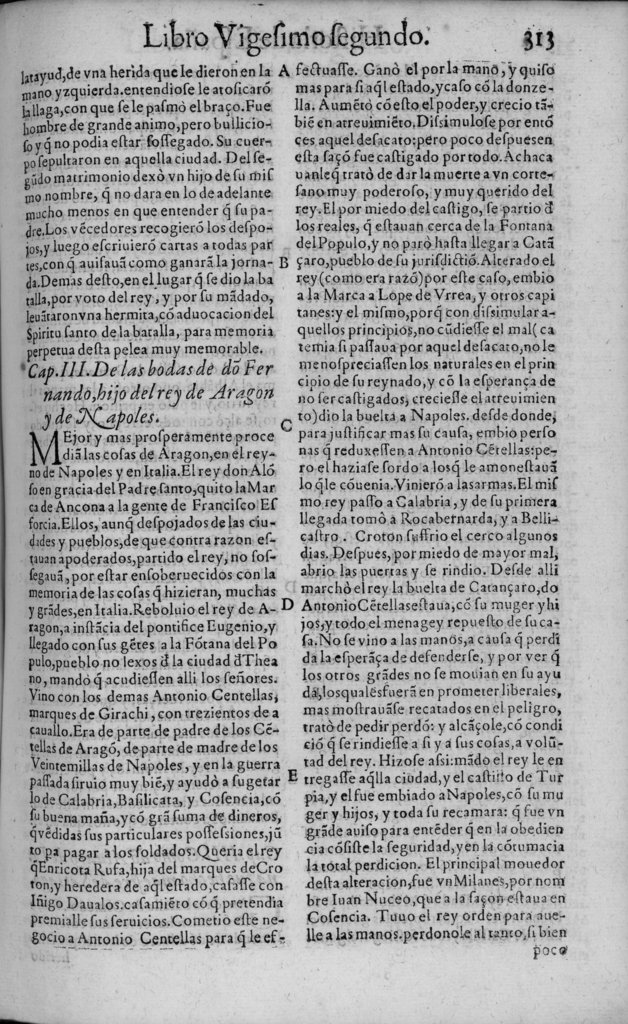 Libro Vigesimo segundo. 313
latayud, de vna herida que le dieron en la
mano yzquierda. entendiose le atosicarõ
la llaga, con que se le pasmò el braço. Fue
hombre de grande animo, pero bullicio-
so y q̃ no podia estar sossegado. Su cuer-
po sepultaron en aquella ciudad. Del se-
gũdo matrimonio dexò vn hijo de su mis
mo nombre, q̃ no dara en lo de adelante
mucho menos en que entender q̃ su pa-
dre. Los vẽcedores recogierõ los despo-
jos, y luego escriuierõ cartas a todas par
tes, con q̃ auisauã como ganarã la jorna-
da. Demas desto, en el lugar q̃ se dio la ba
talla, por voto del rey, y por su mãdado,
leuãtaron vna hermita, cõ aduocacion del
Spiritu santo de la batalla, para memoria
perpetua desta pelea muy memorable.
Cap. III. De las bodas de dõ Fer
nando, hijo del rey de Aragon
y de Napoles.
MEjor y mas prosperamente proce
diã las cosas de Aragon, en el rey-
no de Napoles y en Italia. El rey don Alõ
so en gracia del Padre santo, quito la Mar
ca de Ancona a la gente de Francisco Es
forcia. Ellos, aunq̃ despojados de las ciu-
dades y pueblos, de que contra razon es-
tauan apoderados, partido el rey, no sos-
segauã, por estar ensoberuecidos con la
memoria de las cosas q̃ hizieran, muchas
y grãdes, en Italia. Reboluio el rey de A-
ragon, a instãcia del pontifice Eugenio, y
llegado con sus gẽtes a la Fõtana del Po
pulo, pueblo no lexos đ la ciudad đ Thea
no, mandò, q̃ acudiessen alli los señores.
Vino con los demas Antonio Centellas,
marques de Girachi, con trezientos de a
cauallo. Era de parte de padre de los Cẽ-
tellas de Aragõ, de parte de madre de los
Veintemillas de Napoles, y en la guerra
passada siruio muy biẽ, y ayudò a sugetar
lo de Calabria, Basilicata, y Cosencia, cõ
su buena maña, y cõ grã suma de dineros,
q̃ vẽdidas sus particulares possessiones, jũ
to pa pagar a los soldados. Queria el rey
q̃ Enricota Rufa, hija del marques de Cro
ton, y heredera de aq̃l estado, casasse con
Iñigo Daualos. casamiẽto cõ q̃ pretendia
premialle sus seruicios. Cometio este ne-
gocio a Antonio Centellas para q̃ le ef-
A
B
C
D
E
fectuasse. Ganò el por la mano, y quiso
mas para si aq̃l estado, y caso cõ la donze-
lla. Aumẽtò cõ esto el poder, y crecio tã-
biẽ en atreuimiẽto. Dissimulose por entõ
ces aquel desacato: pero poco despues en
esta saçõ fue castigado por todo. Achaca
uanle q̃ tratò de dar la muerte a vn corte-
sano muy poderoso, y muy querido del
rey. El por miedo del castigo, se partio đ
los reales, q̃ estauan cerca de la Fontana
del Populo, y no parò hasta llegar a Catã
çaro, pueblo de su jurisdictiõ. Alterado el
rey (como era razõ) por este caso, embio
a la Marca a Lope de Vrrea, y otros capi
tanes: y el mismo, porq̃ con dissimular a-
quellos principios, no cũdiesse el mal (ca
temia si passaua por aquel desacato, no le
menospreciassen los naturales en el prin
cipio de su reynado, y cõ la esperança de
no ser castigados, creciesse el atreuimien
to) dio la buelta a Napoles. desde donde,
para justificar mas su causa, embio perso
nas q̃ reduxessen a Antonio Cẽtellas: pe-
ro el haziase sordo a los q̃ le amonestauã
lo q̃ le cõuenia. Vinierõ a las armas. El mis
mo rey passò a Calabria, y de su primera
llegada tomò a Rocabernarda, y a Belli-
castro. Croton suffrio el cerco algunos
dias. Despues, por miedo de mayor mal,
abrio las puertas y se rindio. Desde alli
marchò el rey la buelta de Catançaro, do
Antonio Cẽtellas estaua, cõ su muger y hi
jos, y todo el menage y repuesto de su ca-
sa. No se vino a las manos, a causa q̃ perdi
da la esperãça de defenderse, y por ver q̃
los otros grãdes no se mouian en su ayu
da, los quales fuerã en prometer liberales,
mas mostrauãse recatados en el peligro,
tratò de pedir perdõ: y alcãçole, cõ condi
ciõ q̃ se rindiesse a si y a sus cosas, a volũ-
tad del rey. Hizose assi: mãdò el rey le en
tregasse aq̃lla ciudad, y el castillo de Tur
pia, y el fue embiado a Napoles, cõ su mu
ger y hijos, y toda su recamara: q̃ fue vn
grãde auiso para entẽder q̃ en la obedien
cia cõsiste la seguridad, y en la cõtumacia
la total perdicion. El principal mouedor
desta alteracion, fue vn Milanes, por nom
bre Iuan Nuceo, que a la saçon estaua en
Cosencia. Tuuo el rey orden para aue-
lle a las manos. perdonole al tanto, si bien
poco